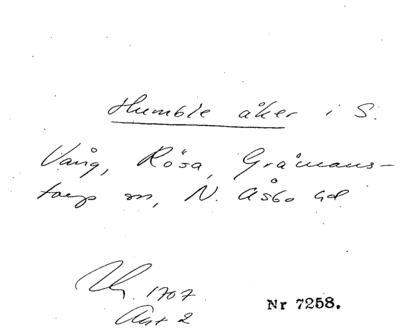 Humble åker i S.
Vång, Rösa, Gråmans-
torp sn, N. Åsbo hd
1707
Akt 2
Nr 7258.